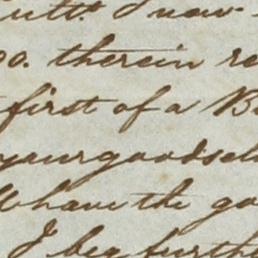 ultº. I now
00. therein re
first of a B
yourgoodsel
Ihave the go
I beg furthe